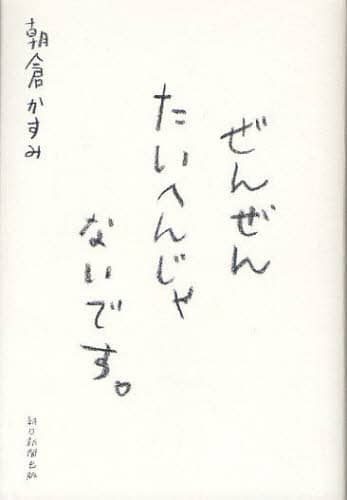 ぜんぜん
たいへんじゃ
ないです。
朝倉かすみ
朝日新聞出版